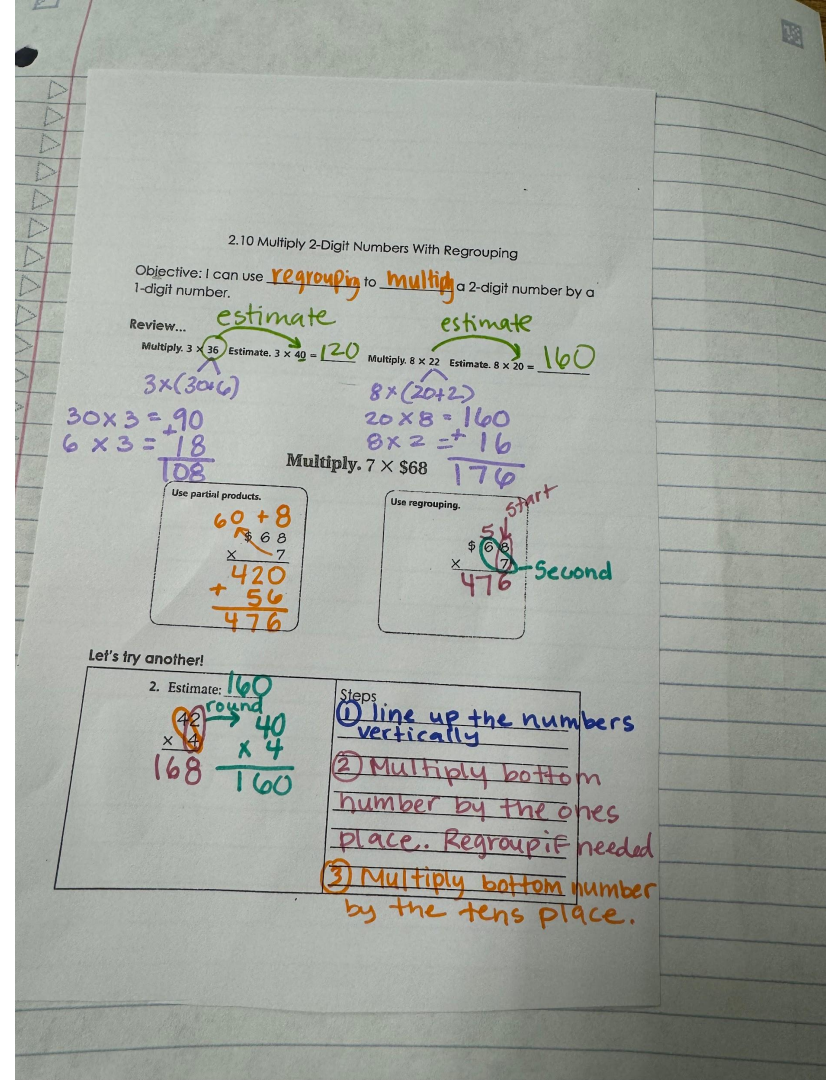 2.10 Multiply 2-Digit Numbers With Regrouping
Objective: I can use regrouping to multiply a 2-digit number by a
1-digit number.
Review... estimate estimate
Multiply. 3 × 36 Estimate. 3 × 40 = 120 Multiply. 8 × 22 Estimate. 8 × 20 = 160
3×(30+6) 8×(20+2)
30×3 = 90 20×8 = 160
6×3 = +18 8×2 = +16
108 176
Multiply. 7 × $68
Use partial products.
60 + 8
$ 68
× 7
420
+ 56
476
Use regrouping.
start
5
$ 68
× 7 Second
476
Let's try another!
2. Estimate: 160
round
42 40
× 4 × 4
168 160
Steps
① line up the numbers
vertically
② Multiply bottom
number by the ones
place.. Regroup if needed
③ Multiply bottom number
by the tens place.